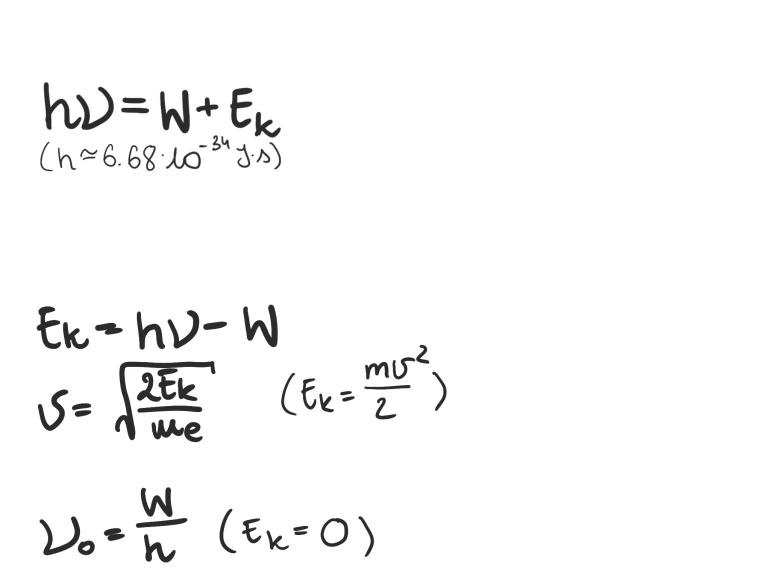 hν = W + Eₖ
(h ≃ 6.68·10⁻³⁴ J·s)
Eₖ = hν − W
v = √(2Eₖ/mₑ) (Eₖ = mv²/2)
ν₀ = W/h (Eₖ = 0)